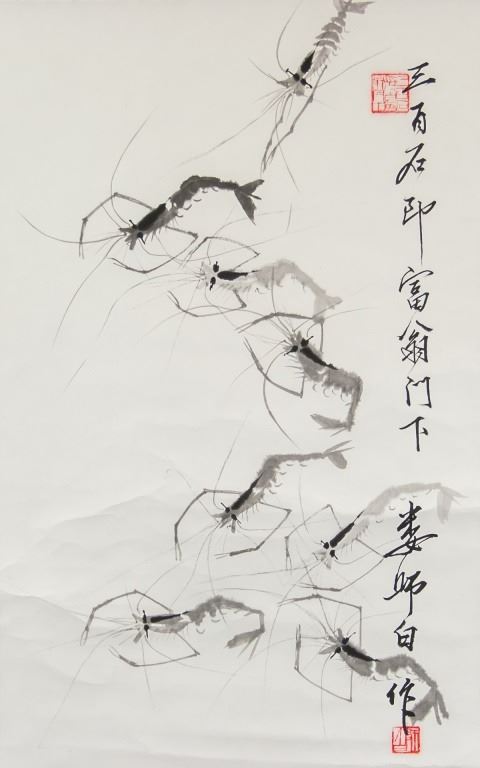 三百石印富翁门下
娄师白作